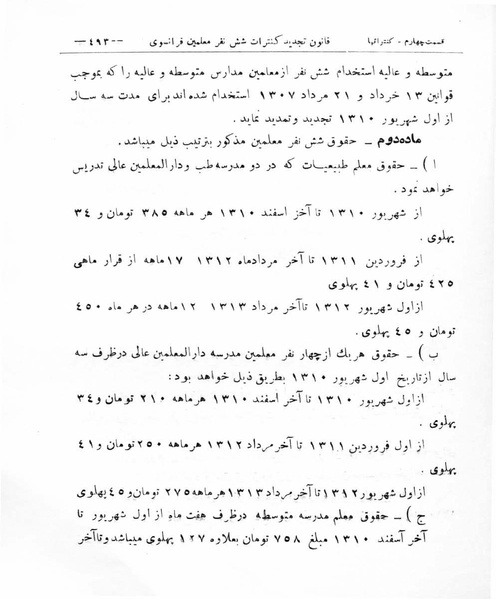 قسمت چهارم - کنتراتها قانون تجدید کنترات شش نفر معلمین فرانسوی —٤٩٣—
متوسطه و عالیه استخدام شش نفر از معلمین مدارس متوسطه و عالیه را که بموجب
قوانین ۱۳ خرداد و ۲۱ مرداد ۱۳۰۷ استخدام شده‌اند برای مدت سه سال
از اول شهریور ۱۳۱۰ تجدید و تمدید نماید .
ماده‌دوم ـ حقوق شش نفر معلمین مذکور بترتیب ذیل میباشد.
ا ) ـ حقوق معلم طبیعیات که در دو مدرسه طب و دارالمعلمین عالی تدریس
خواهد نمود .
از شهریور ۱۳۱۰ تا آخر اسفند ۱۳۱۰ هر ماهه ۳۸۵ تومان و ۳٤
پهلوی .
از فروردین ۱۳۱۱ تا آخر مردادماه ۱۳۱۲ ۱۷ماهه از قرار ماهی
٤۲۵ تومان و ٤۱ پهلوی
ازاول شهریور ۱۳۱۲ تاآخر مرداد ۱۳۱۳ ۱۲ماهه در هر ماه ٤۵۰
تومان و ٤۵ پهلوی .
ب ) ـ حقوق هریك ازچهار نفر معلمین مدرسه دارالمعلمین عالی درظرف سه
سال ازتاریخ اول شهریور ۱۳۱۰ بطریق ذیل خواهد بود:
ازاول شهریور ۱۳۱۰ تا آخر اسفند ۱۳۱۰ هرماهه ۲۱۰ تومان و ۳٤
پهلوی .
از اول فروردین ۱۳۱۱ تا آخر مرداد ۱۳۱۲ هرماهه ۲۵۰ تومان و ٤۱
پهلوی .
ازاول شهریور ۱۳۱۲ تا آخر مرداد ۱۳۱۳ هر ماهه ۲۷۵ تومان و ٤۵ پهلوی
ج ) ـ حقوق معلم مدرسه متوسطه درظرف هفت ماه از اول شهریور تا
آخر اسفند ۱۳۱۰ مبلغ ۷۵۸ تومان بعلاوه ۱۲۷ پهلوی میباشد و تاآخر